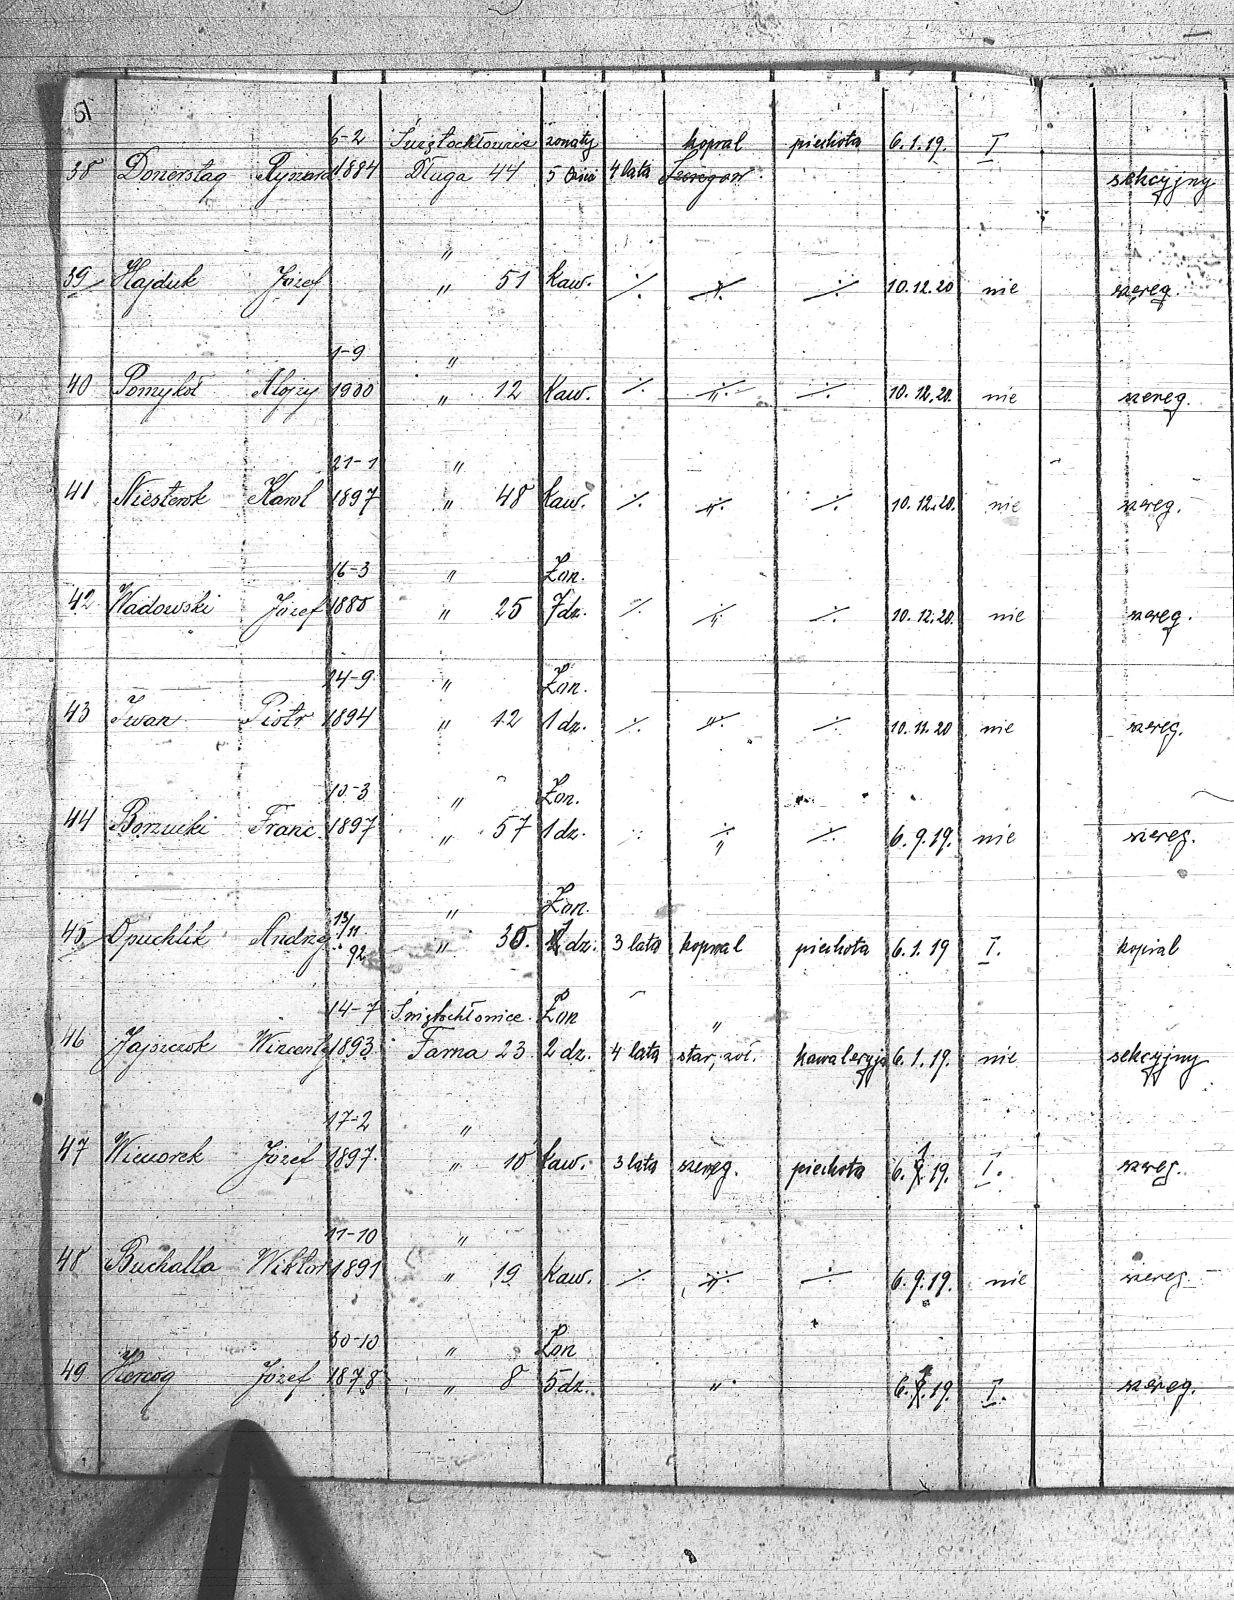 51
6-2 Świętochłowice żonaty kopral piechota 6.1.19. I
38 Donerstag Ryszard 1884 Długa 44 5 4 lata Szeregow. sekcyjny
"
39 Hajduk Józef " 51 Kaw. ⁒ ⁒ ⁒ 10.12.20 nie szereg.
1-9 "
40 Pomykoł Alojzy 1900 " 12 Kaw. ⁒ ⁒ ⁒ 10.12.20. nie szereg.
21-1 "
41 Niesterok Karol 1897 " 48 Kaw. ⁒ ⁒ ⁒ 10.12.20. nie szereg.
16-3 " Żon.
42 Wadowski Józef 1885 " 25 7 dz. ⁒ ⁒ ⁒ 10.12.20. nie szereg.
14-9 " Żon.
43 Iwan Piotr 1894 " 12 1 dz. ⁒ ⁒ ⁒ 10.12.20 nie szereg.
10-3 " Żon.
44 Borzucki Franc. 1897 " 57 1 dz. ⁒ ⁒ ⁒ 6.9.19. nie szereg.
13/11 " Żon.
45 Opuchlik Andrzej 92 " 35. 1 dz. 3 lata kopral piechota 6.1.19 I. kopral
14-7 Świętochłonice Żon "
46 Jajszczok Wincenty 1893 Farna 23 2 dz. 4 lata star. żoł. kawaleryja 6.1.19. nie sekcyjny
17-2 "
47 Wieczorek Józef 1897 " 10 Kaw. 3 lata szereg. piechota 6.1.19. I. szereg.
11-10 "
48 Buchalla Wiktor 1891 " 19 Kaw. ⁒ ⁒ ⁒ 6.9.19. nie szereg.
30-10 " Żon
49 Herzog Józef 1878 " 8 5 dz. " 6.1.19. I. szereg.